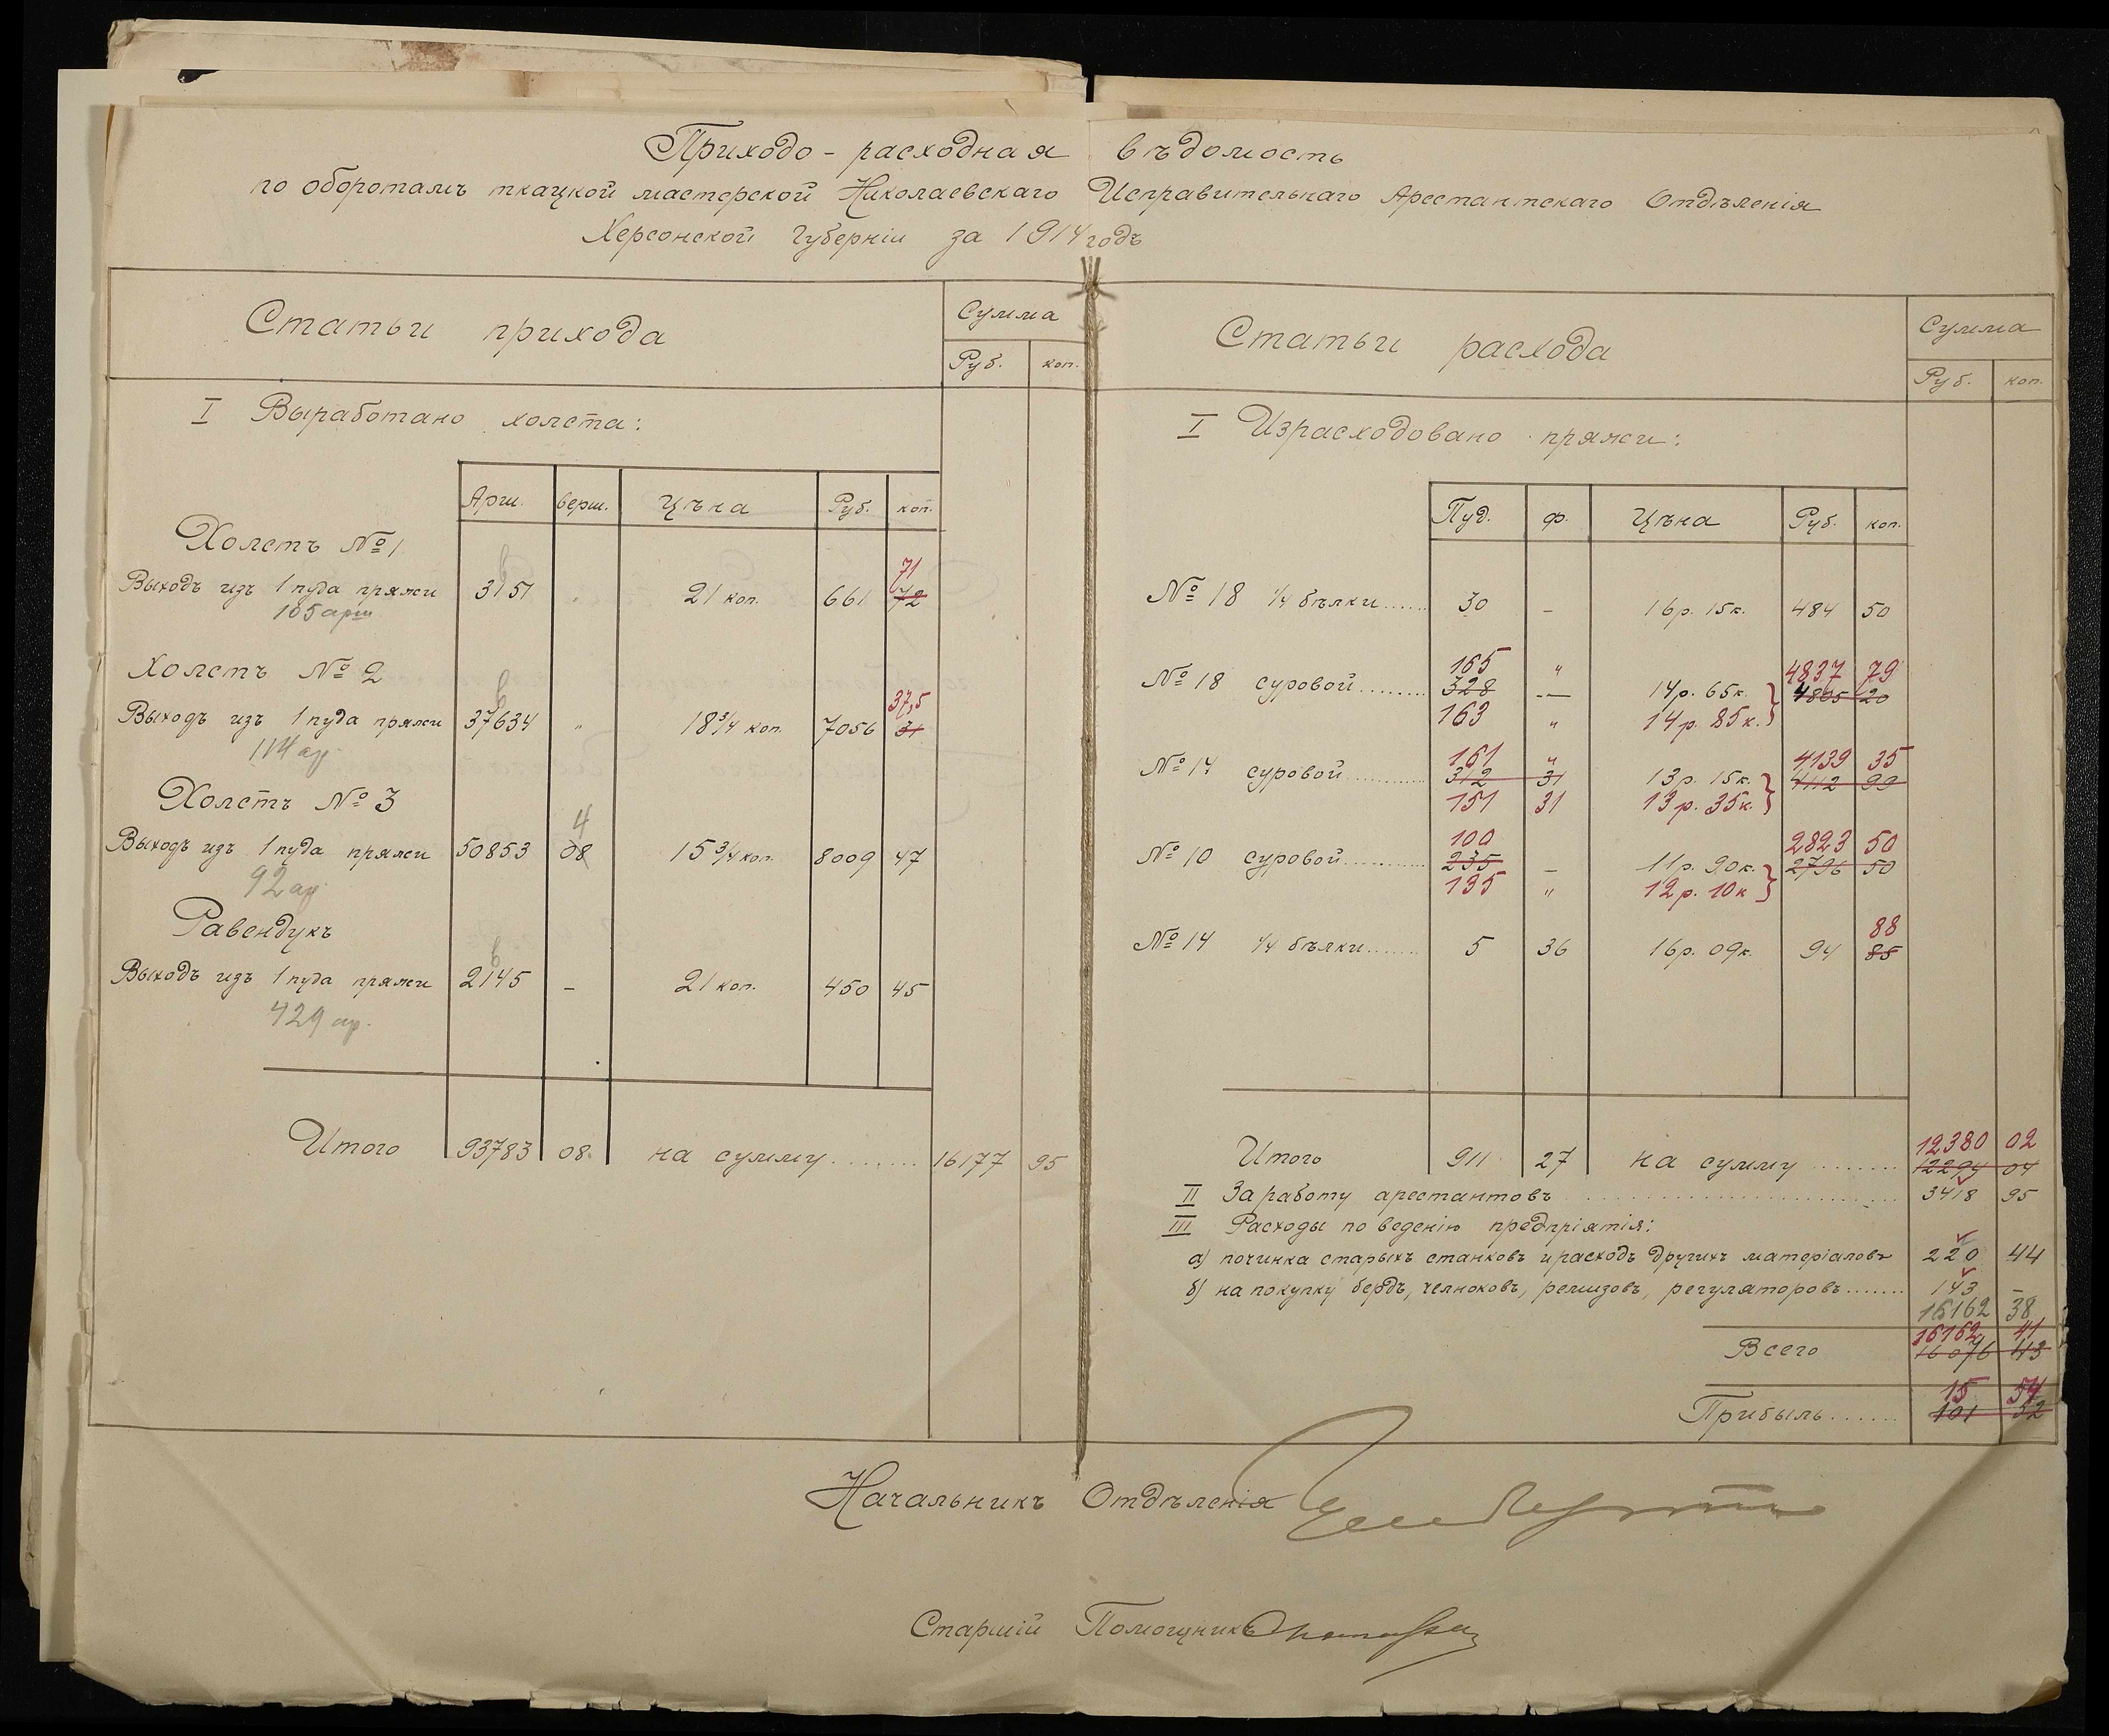 Приходо-расходная вѣдомость
по оборотамъ ткацкой мастерской Николаевскаго Исправительнаго Арестантскаго Отдѣленія
Херсонской Губерніи за 1914 годъ
Статьи прихода
Сумма
Руб. коп.
I Выработано холста:
Арш. верш. Цѣна Руб. коп.
Холстъ № 1
71
Выходъ изъ 1 пуда пряжи 3151 21 коп. 661 72
105 арш
Холстъ № 2
37,5
Выходъ изъ 1 пуда пряжи 37634 " 18 3/4 коп. 7056 31
114 ар.
Холстъ № 3
4
Выходъ изъ 1 пуда пряжи 50853 08 15 3/4 коп. 8009 47
92 ар.
Равендукъ
Выходъ изъ 1 пуда пряжи 2145 – 21 коп. 450 45
429 ар.
Итого 93783 08 на сумму ....... 16177 95
Статьи расхода
Сумма
Руб. коп.
I Израсходовано пряжи:
Пуд. ф. Цѣна Руб. коп.
№ 18 1/4 бѣлки...... 30 – 16 р. 15 к. 484 50
165 " 4837 79
№ 18 суровой........ 328 – 14 р. 65 к. 4805 20
163 " 14 р. 85 к.
161 " 4139 35
№ 14 суровой........ 312 31 13 р. 15 к. 4112 99
151 31 13 р. 35 к.
100 2823 50
№ 10 суровой........ 235 – 11 р. 90 к. 2796 50
135 " 12 р. 10 к
88
№ 14 1/4 бѣлки....... 5 36 16 р. 09 к. 94 85
12380 02
Итого 911 27 на сумму ........ 12294 04
II За работу арестантовъ ........ 3418 95
III Расходы по веденію предпріятія:
а) починка старыхъ станковъ и расходъ другихъ матеріаловъ 220 44
б) на покупку бердъ, челноковъ, ремизовъ, регуляторовъ....... 143 –
16162 38
16162 41
Всего 16076 43
15 54
Прибыль...... 101 52
Начальникъ Отдѣленія
Старшій Помощникъ